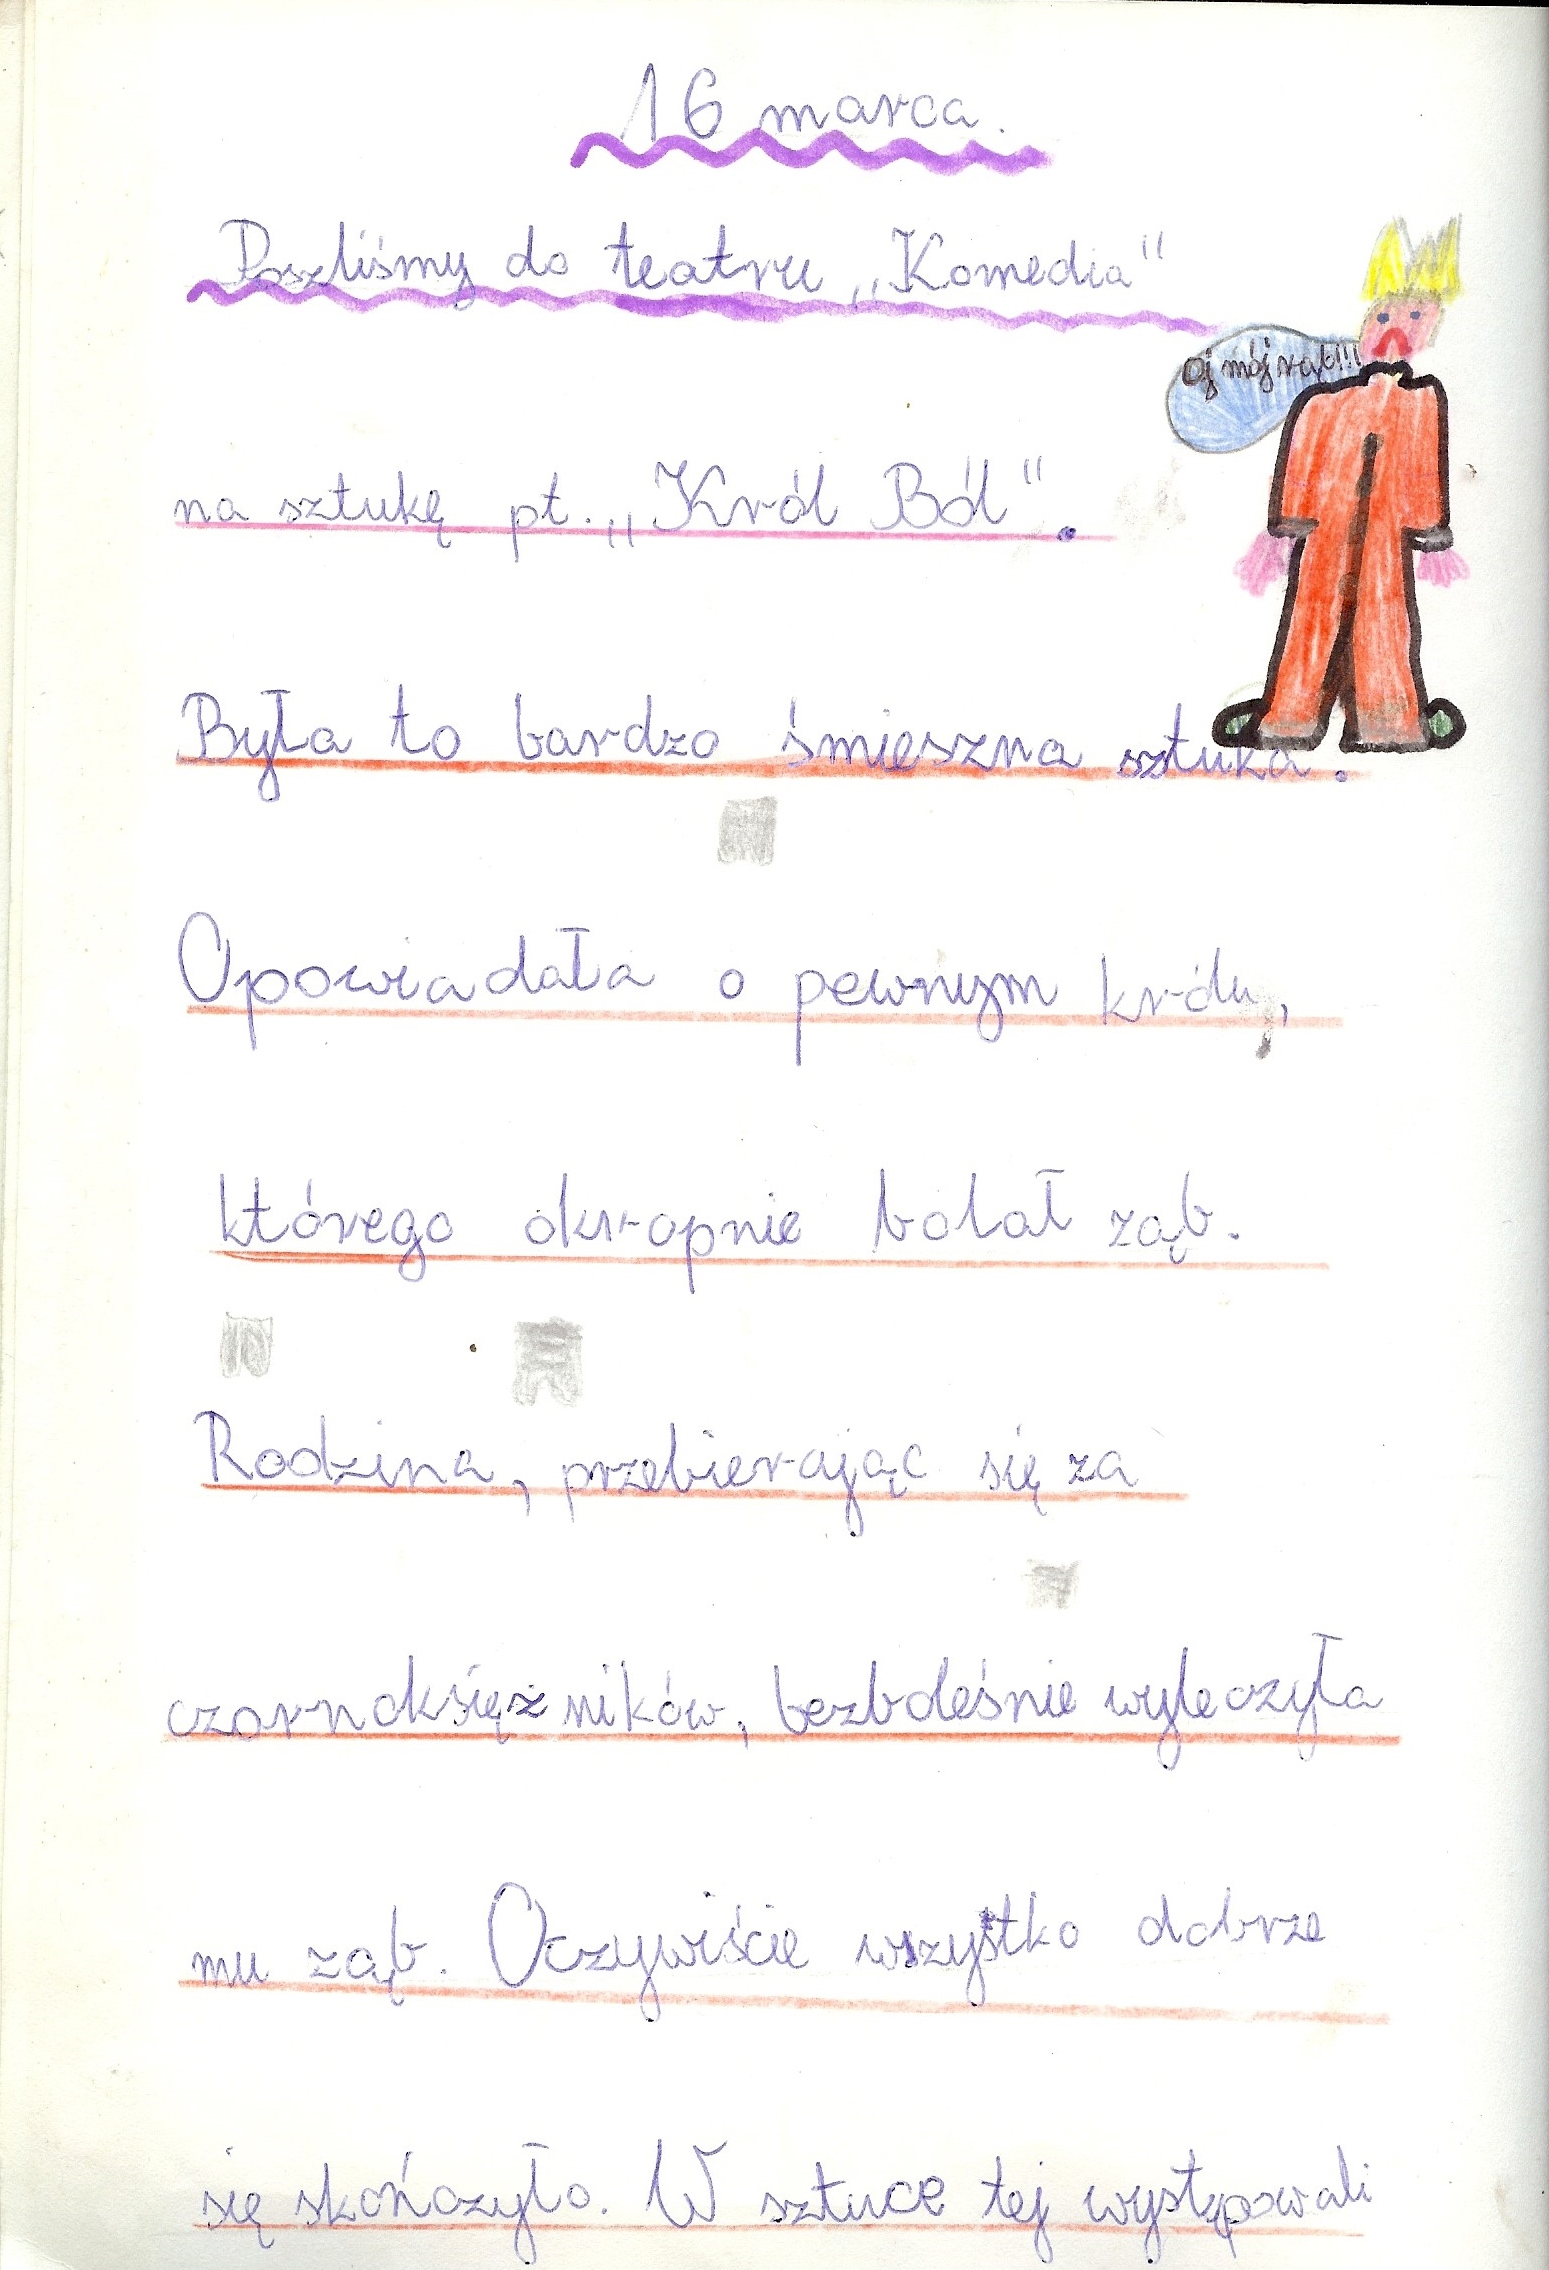 16 marca.
Poszliśmy do teatru „Komedia"
Oj mój ząb!!!
na sztukę pt. „Król Ból".
Była to bardzo śmieszna sztuka.
Opowiadała o pewnym królu,
którego okropnie bolał ząb.
Rodzina, przebierając się za
czarnoksiężników, bezboleśnie wyleczyła
mu ząb. Oczywiście wszystko dobrze
się skończyło. W sztuce tej występowali